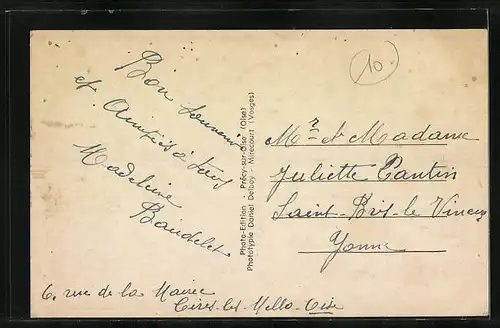 Bon souvenir
et Amitiés à tous
Madeleine
Baudelet
6. rue de la Mairie
Cires-les-Mello-Oise
Photo-Edition - Précy-sur-Oise (Oise)
Phototypie Daniel Delboy - Mirecourt (Vosges)
10
Mr et Madame
Juliette Pantin
Saint-Bris-le Vineux
Yonne